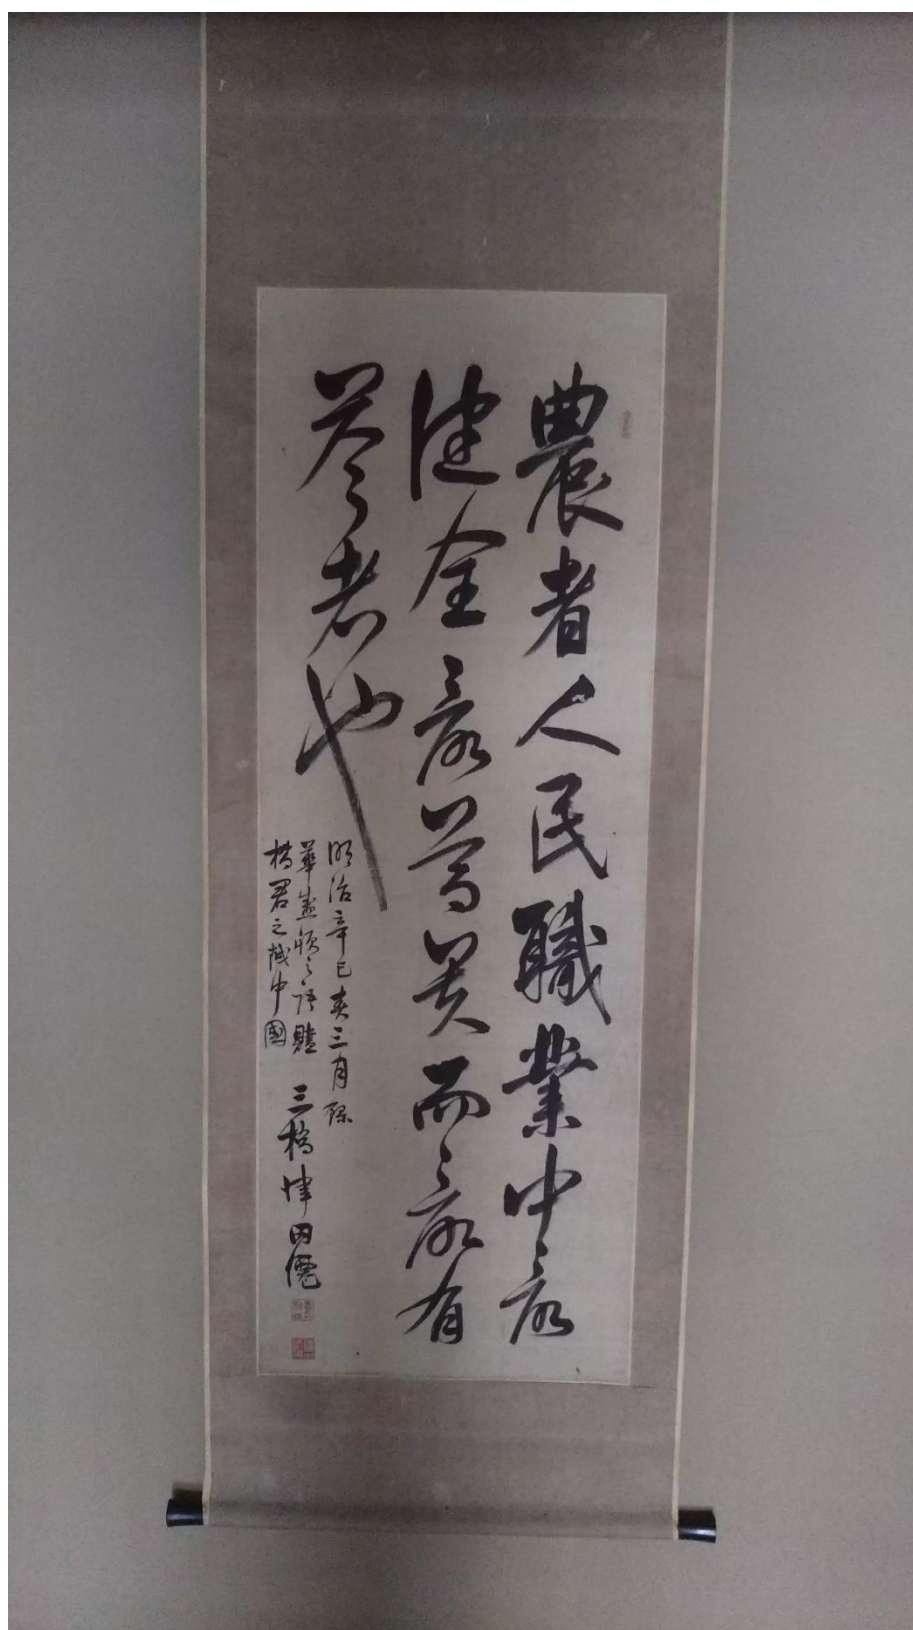 農者人民職業中最
健全最尊貴而最有
益者也
明治辛巳春三月録
華盛頓之語贐
君之越中國
三橋津田僊